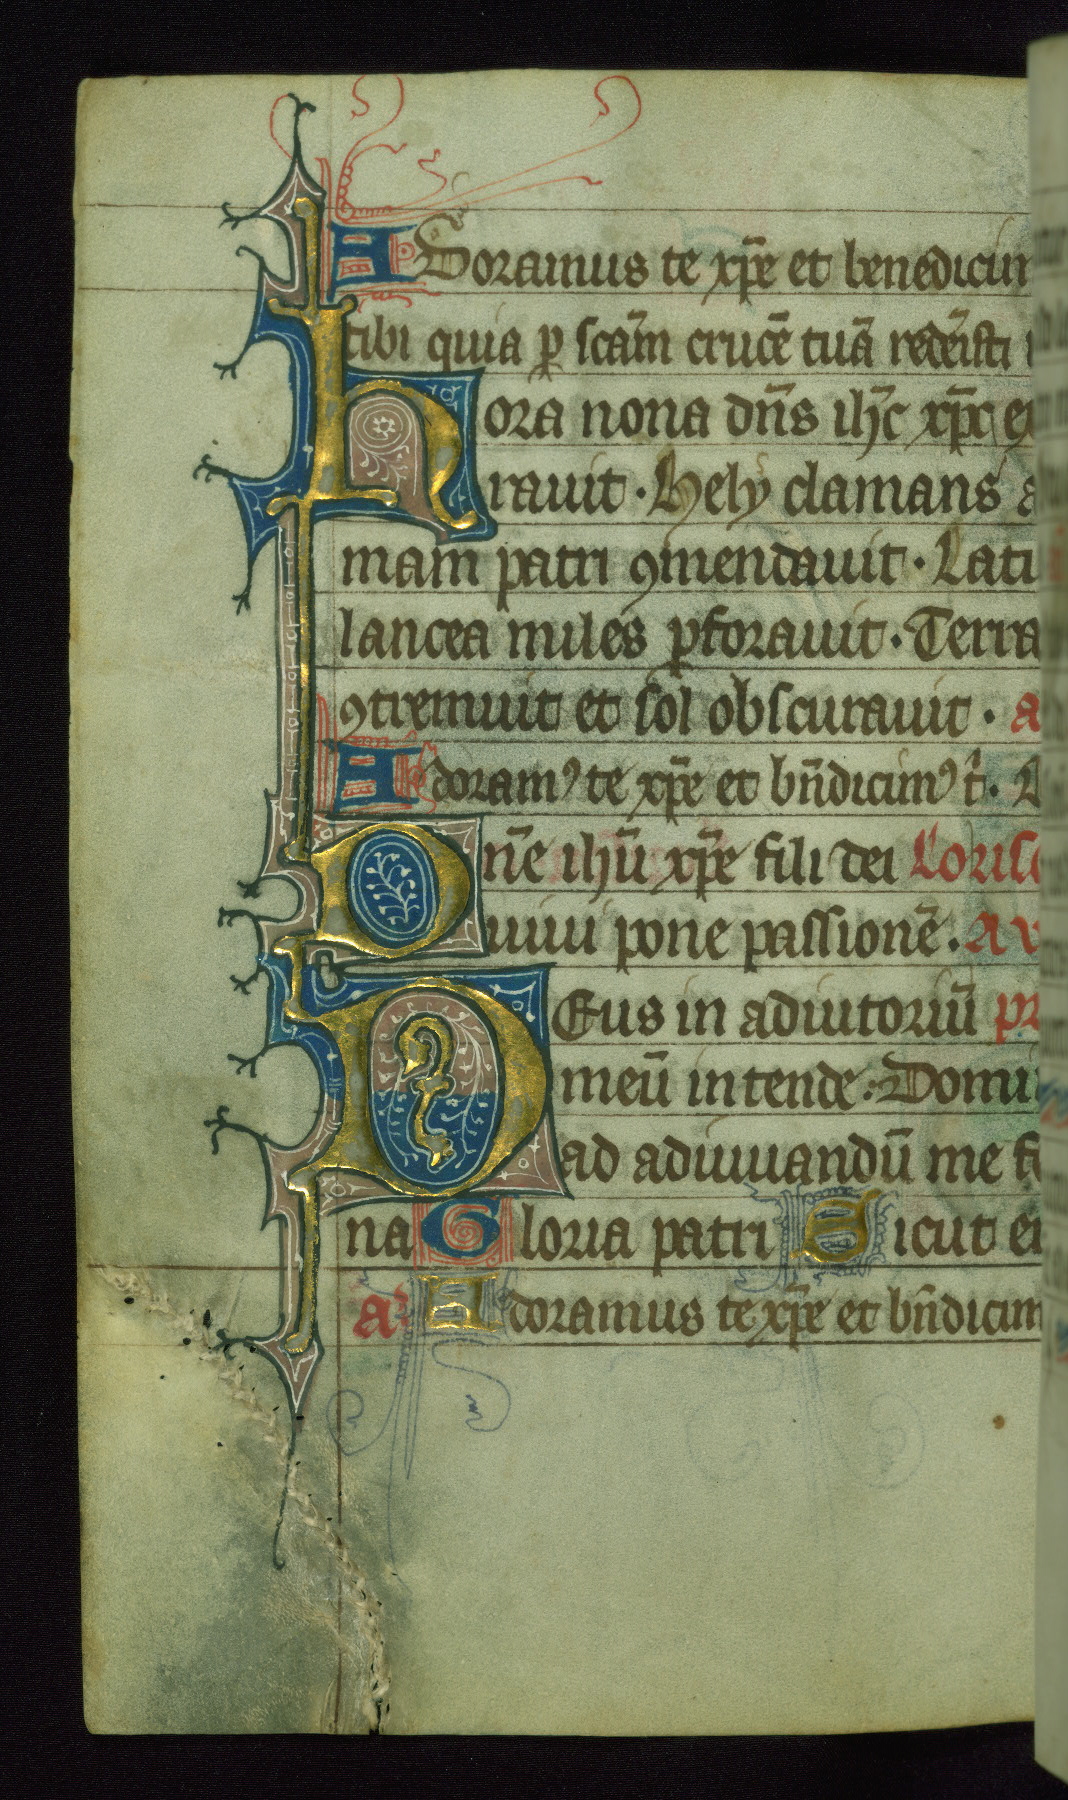 ADoramus te xp̄e et benedicim
tibi quia ꝑ scām crucē tuā redemisti
hora nona dn̄s ih̄c xp̄c ex
rauit · Hely clamans a
mam patri ꝯmendauit · Lati
lancea miles ꝑforauit · Terra
ꝯtremuit et sol obscurauit · a
Adoramꝰ te xp̄e et bn̄dicimꝰ t̄ ·
Dn̄e ih̄u xp̄e fili dei Lorisō
uiui pone passionē · Ar
DEus in adiutoriū pr
meū intende · Domi
ad adiuuandū me fe
na Gloria patri Sicut er
a Adoramus te xp̄e et bn̄dicim